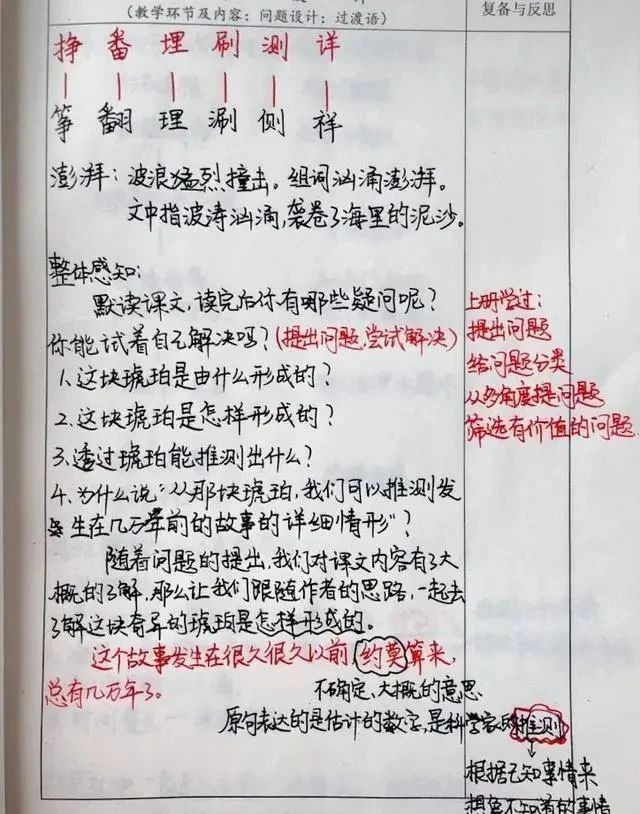 (教学环节及内容：问题设计：过渡语)
复备与反思
挣 番 埋 刷 测 详
筝 翻 理 涮 侧 祥
澎湃：波浪猛烈撞击。组词汹涌澎湃。
文中指波涛汹涌，袭卷了海里的泥沙。
整体感知：
默读课文，读完后你有哪些疑问呢？
你能试着自己解决吗？(提出问题，尝试解决)
1.这块琥珀是由什么形成的？
2.这块琥珀是怎样形成的？
3.透过琥珀能推测出什么？
4.为什么说“从那块琥珀，我们可以推测发
生在几万年前的故事的详细情形”？
随着问题的提出，我们对课文内容有了大
概的了解，那么让我们跟随作者的思路，一起去
了解这块奇异的琥珀是怎样形成的。
这个故事发生在很久很久以前，约莫算来，
总有几万年了。
不确定、大概的意思
原句表达的是估计的数字，是科学家的推测
根据已知事情来
想象不知道的事情
上册学过：
提出问题
给问题分类
从多角度提问题
筛选有价值的问题